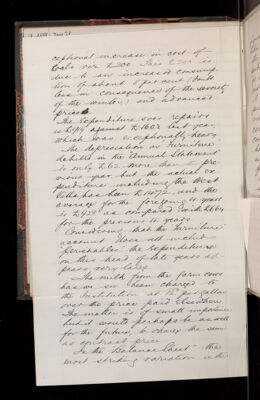 ceptional increase in cost of
Coals viz £200. This £200 is
due to an increased consump-
tion of about 5 per cent (doubt
less in consequence of the severity
of the winter) and advanced
prices.
The Expenditure over repairs
is £919 against £1607 last year
which was exceptionally heavy.
The depreciation on Furniture
debited in the Annual Statement
is only £62 more than the pre-
vious year but the actual ex-
penditure including the West
Villa has been £1472 and the
average for the foregoing 10 years
is £928 as compared with £664
for the previous 10 years.
Considering that the Furniture
account does not include
perishables the Expenditure
on this head of late years ap-
pears very large.
The milk from the farm cows
has we see been charged to
the Institution at per gallon
over the price paid elsewhere.
The matter is of small importance
but it would perhaps be as well
for the future to charge the same
as contract price.
In the Balance Sheet the
most striking variation is the